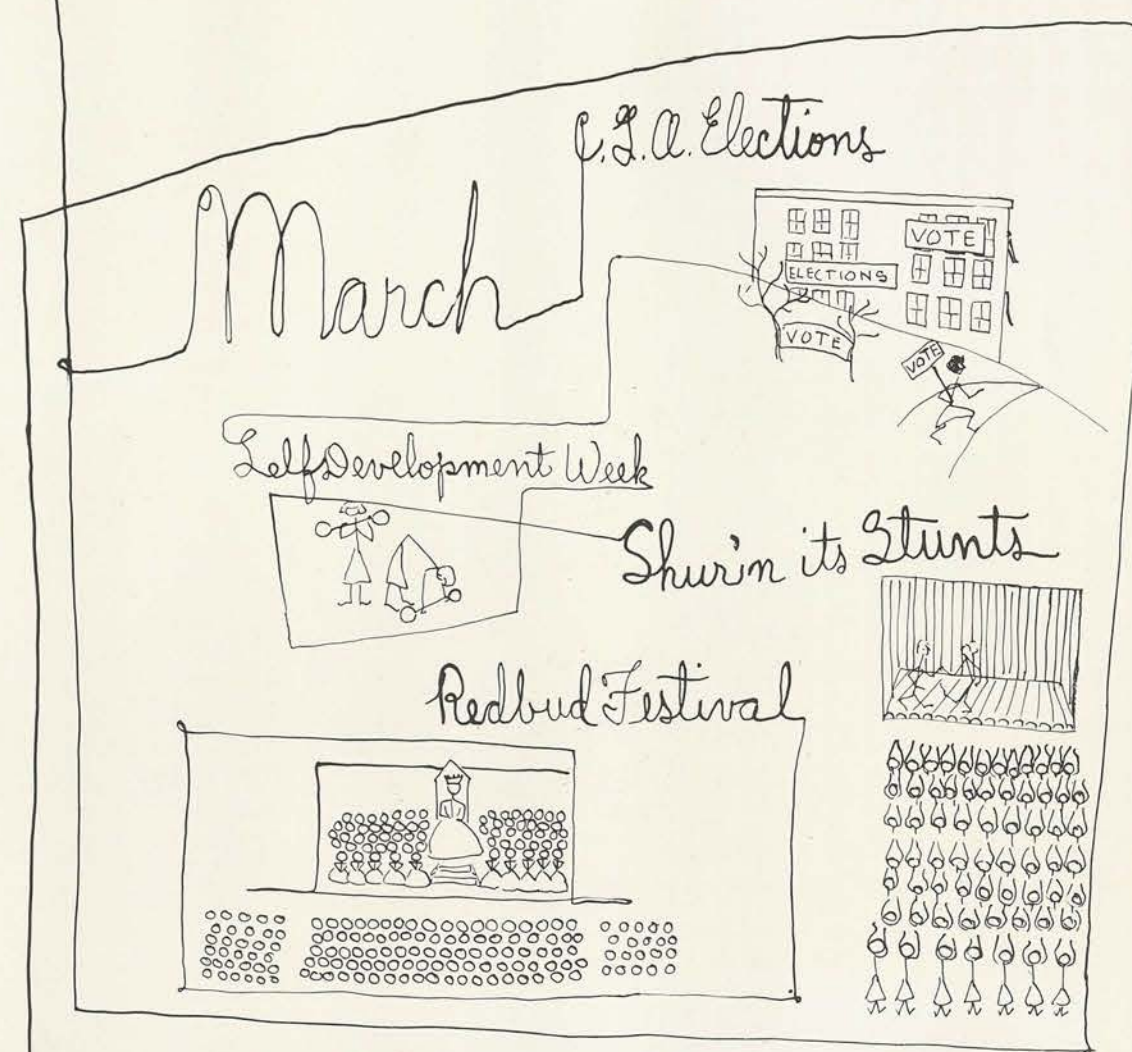 C.G.A. Elections
March
VOTE
ELECTIONS
VOTE
VOTE
Self Development Week
Shur'in its Stunts
Redbud Festival